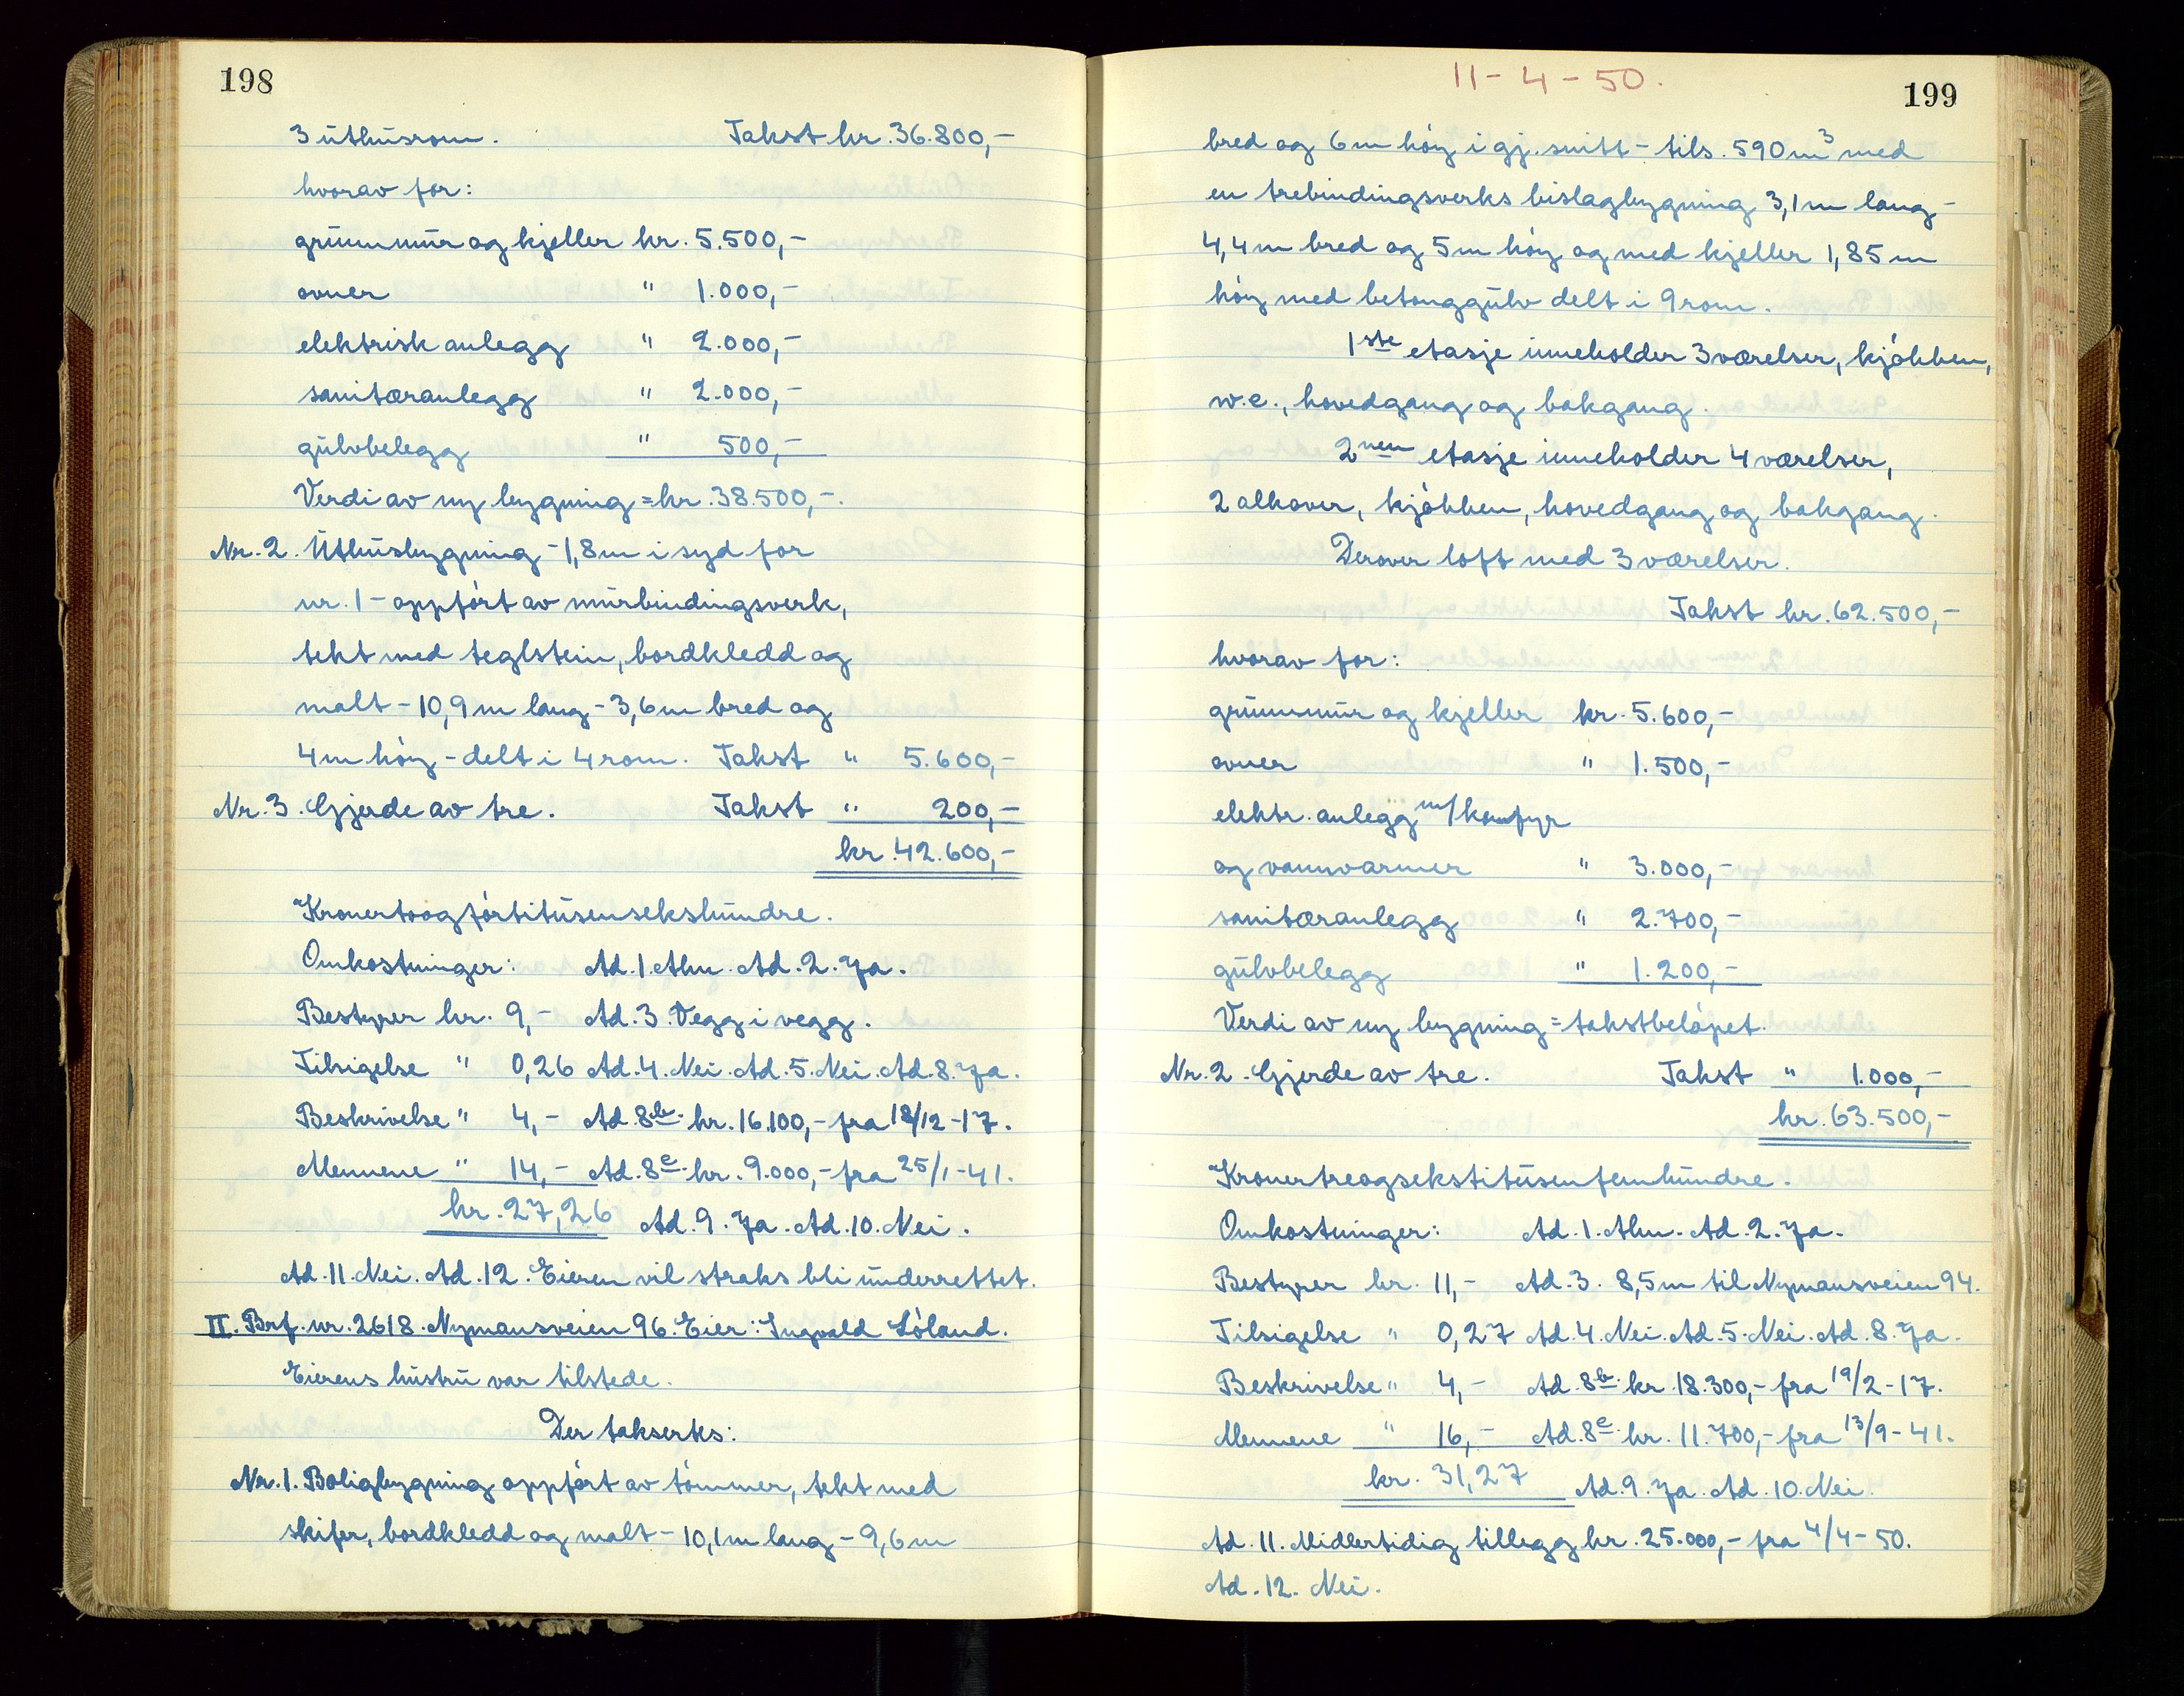 198
3 uthusrom. Takst kr. 36.800,-
hvorav for:
grunnmur og kjeller kr. 5.500,-
ovner " 1.000,-
elektrisk anlegg " 2.000,-
sanitæranlegg " 2.000,-
gulvbelegg " 500,-
Verdi av ny bygning = kr. 38.500,-.
Nr. 2. Uthusbygning - 1,8 m i syd for
nr. 1 - oppført av murbindingsverk,
tekt med teglstein, bordkledd og
malt - 10,9 m lang - 3,6 m bred og
4 m høy - delt i 4 rom. Takst " 5.600,-
Nr. 3. Gjerde av tre. Takst " 200,-
kr. 42.600,-
Kronertoogførtitusensekshundre.
Omkostninger: Ad. 1. Alm. Ad. 2. Ja.
Bestyrer kr. 9,- Ad. 3. Vegg i vegg.
Tilsigelse " 0,26 Ad. 4. Nei. Ad. 5. Nei. Ad. 8. Ja.
Beskrivelse " 4,- Ad. 8b. kr. 16.100,- fra 18/12-17.
Mennene " 14,- Ad. 8e. kr. 9.000,- fra 25/1-41.
kr. 27,26 Ad. 9. Ja. Ad. 10. Nei.
Ad. 11. Nei. Ad. 12. Eieren vil straks bli underrettet.
II. Brf. nr. 2618. Nymansveien 96. Eier: Ingvald Løland.
Eierens hustru var tilstede.
Der taksertes:
Nr. 1. Boligbygning oppført av tømmer, tekt med
skifer, bordkledd og malt - 10,1 m lang - 9,6 m
11-4-50.
199
bred og 6 m høy i gj. snitt - tils. 590 m3 med
en trebindingsverks bislagbygning 3,1 m lang -
4,4 m bred og 5 m høy og med kjeller 1,85 m
høy med betonggulv delt i 9 rom.
1ste etasje inneholder 3 værelser, kjøkken,
w.c., hovedgang og bakgang.
2nen etasje inneholder 4 værelser,
2 alkover, kjøkken, hovedgang og bakgang.
Derover loft med 3 værelser.
Takst kr. 62.500,-
hvorav for:
grunnmur og kjeller kr. 5.600,-
ovner " 1.500,-
elektr. anlegg m/komfyr
og vannvarmer " 3.000,-
sanitæranlegg " 2.700,-
gulvbelegg " 1.200,-
Verdi av ny bygning = takstbeløpet.
Nr. 2. Gjerde av tre. Takst " 1.000,-
kr. 63.500,-
Kronertreogsekstitusenfemhundre.
Omkostninger: Ad. 1. Alm. Ad. 2. Ja.
Bestyrer kr. 11,- Ad. 3. 8,5 m til Nymansveien 94.
Tilsigelse " 0,27 Ad. 4. Nei. Ad. 5. Nei. Ad. 8. Ja.
Beskrivelse " 4,- Ad. 8b. kr. 18.300,- fra 19/2-17.
Mennene " 16,- Ad. 8e. kr. 11.700,- fra 13/9-41.
kr. 31,27 Ad. 9. Ja. Ad. 10. Nei.
Ad. 11. Midlertidig tillegg kr. 25.000,- fra 4/4-50.
Ad. 12. Nei.